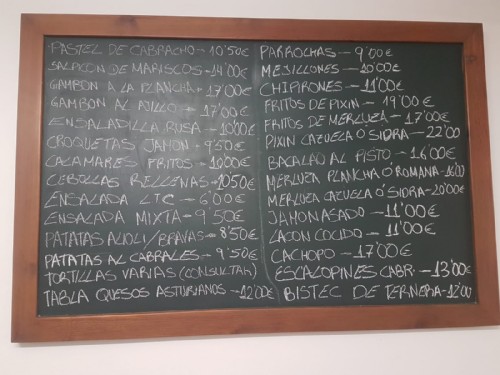 PASTEL DE CABRACHO - 10'50€
SALPICON DE MARISCOS - 14'00€
GAMBON A LA PLANCHA - 17'00€
GAMBON AL AJILLO - 17'00€
ENSALADILLA RUSA - 10'00€
CROQUETAS JAMON - 9'50€
CALAMARES FRITOS - 10'00€
CEBOLLAS RELLENAS - 10'50€
ENSALADA LTC - 6'00€
ENSALADA MIXTA - 9'50€
PATATAS ALIOLI/BRAVAS - 8'50€
PATATAS AL CABRALES - 9'50€
TORTILLAS VARIAS (CONSULTAR)
TABLA QUESOS ASTURIANOS - 12'00€
PARROCHAS - 9'00€
MEJILLONES - 10'00€
CHIPIRONES - 11'00€
FRITOS DE PIXIN - 19'00€
FRITOS DE MERLUZA - 17'00€
PIXIN CAZUELA Ó SIDRA - 22'00
BACALAO AL PISTO - 16'00€
MERLUZA PLANCHA Ó ROMANA - 16'00
MERLUZA CAZUELA Ó SIDRA - 20'00€
JAMON ASADO - 11'00€
LACON COCIDO - 11'00€
CACHOPO - 17'00€
ESCALOPINES CABR. - 13'00€
BISTEC DE TERNERA - 12'00